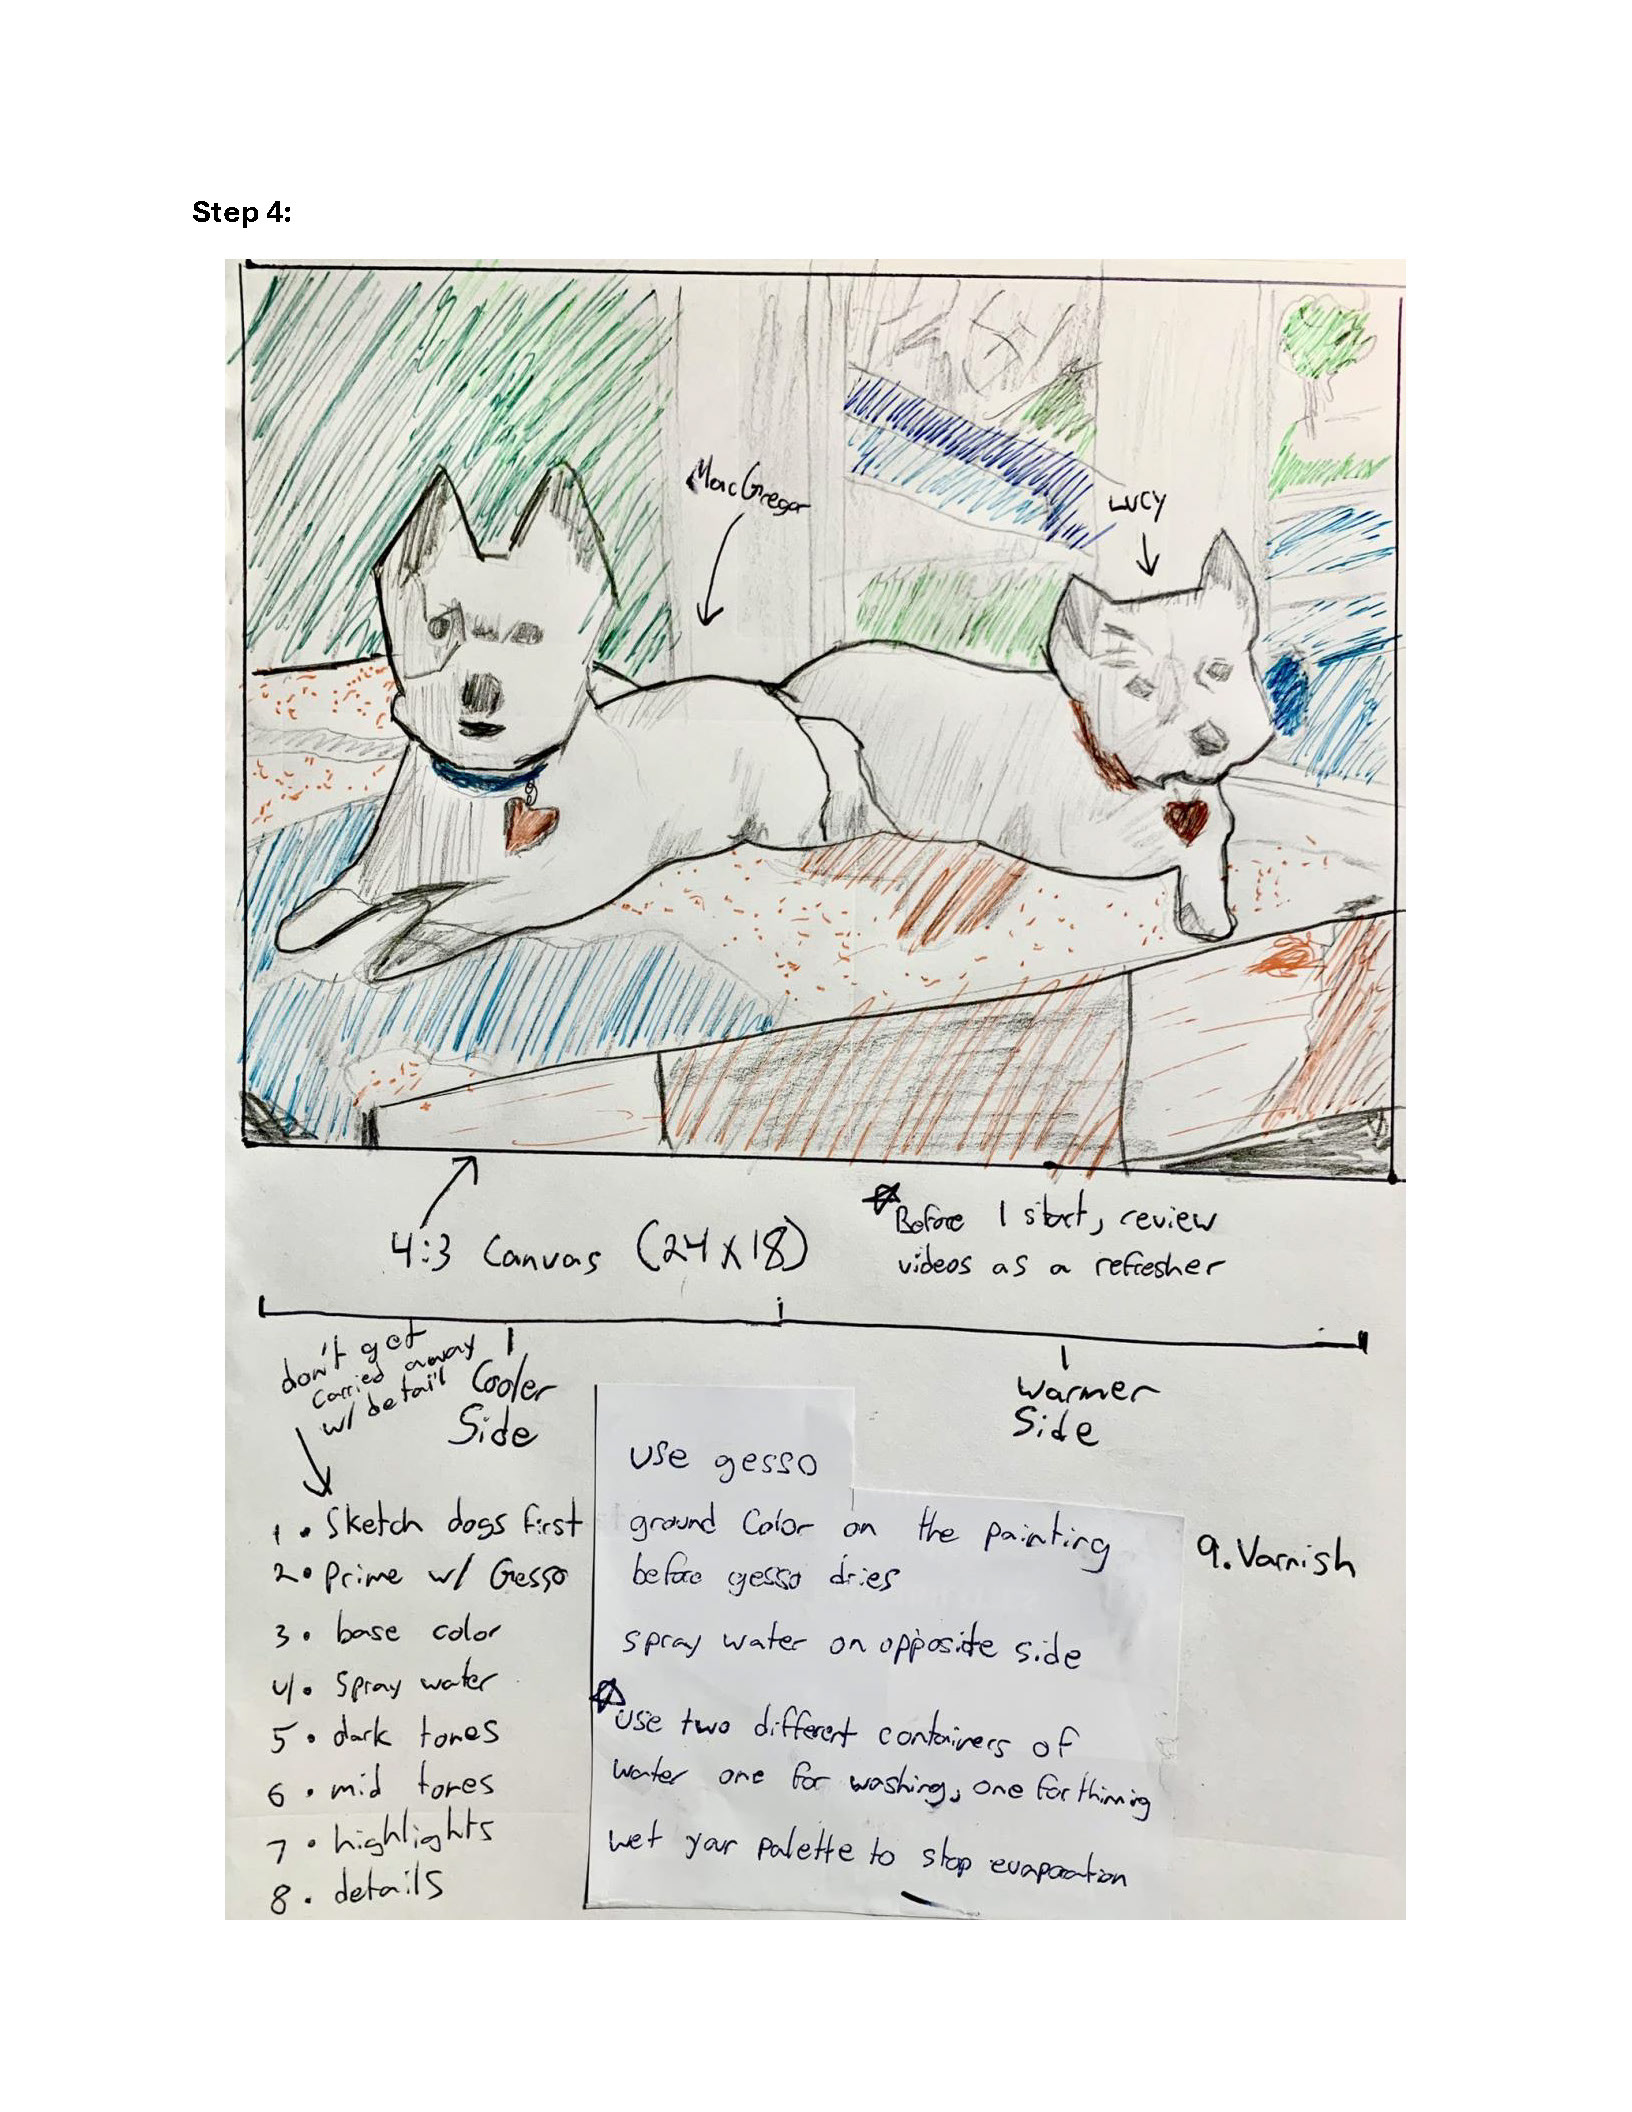 Step 4:
MacGregor
LUCY
4:3 Canvas (24x18)
Before I start, review
videos as a refresher
don't get
carried away
w/ detail
Cooler
Side
Warmer
Side
1. Sketch dogs first
2. Prime w/ Gesso
3. base color
4. Spray water
5. dark tones
6. mid tones
7. highlights
8. details
use gesso
ground Color on the painting
before gesso dries
spray water on opposite side
use two different containers of
water one for washing, one for thinning
wet your palette to stop evaporation
9. Varnish